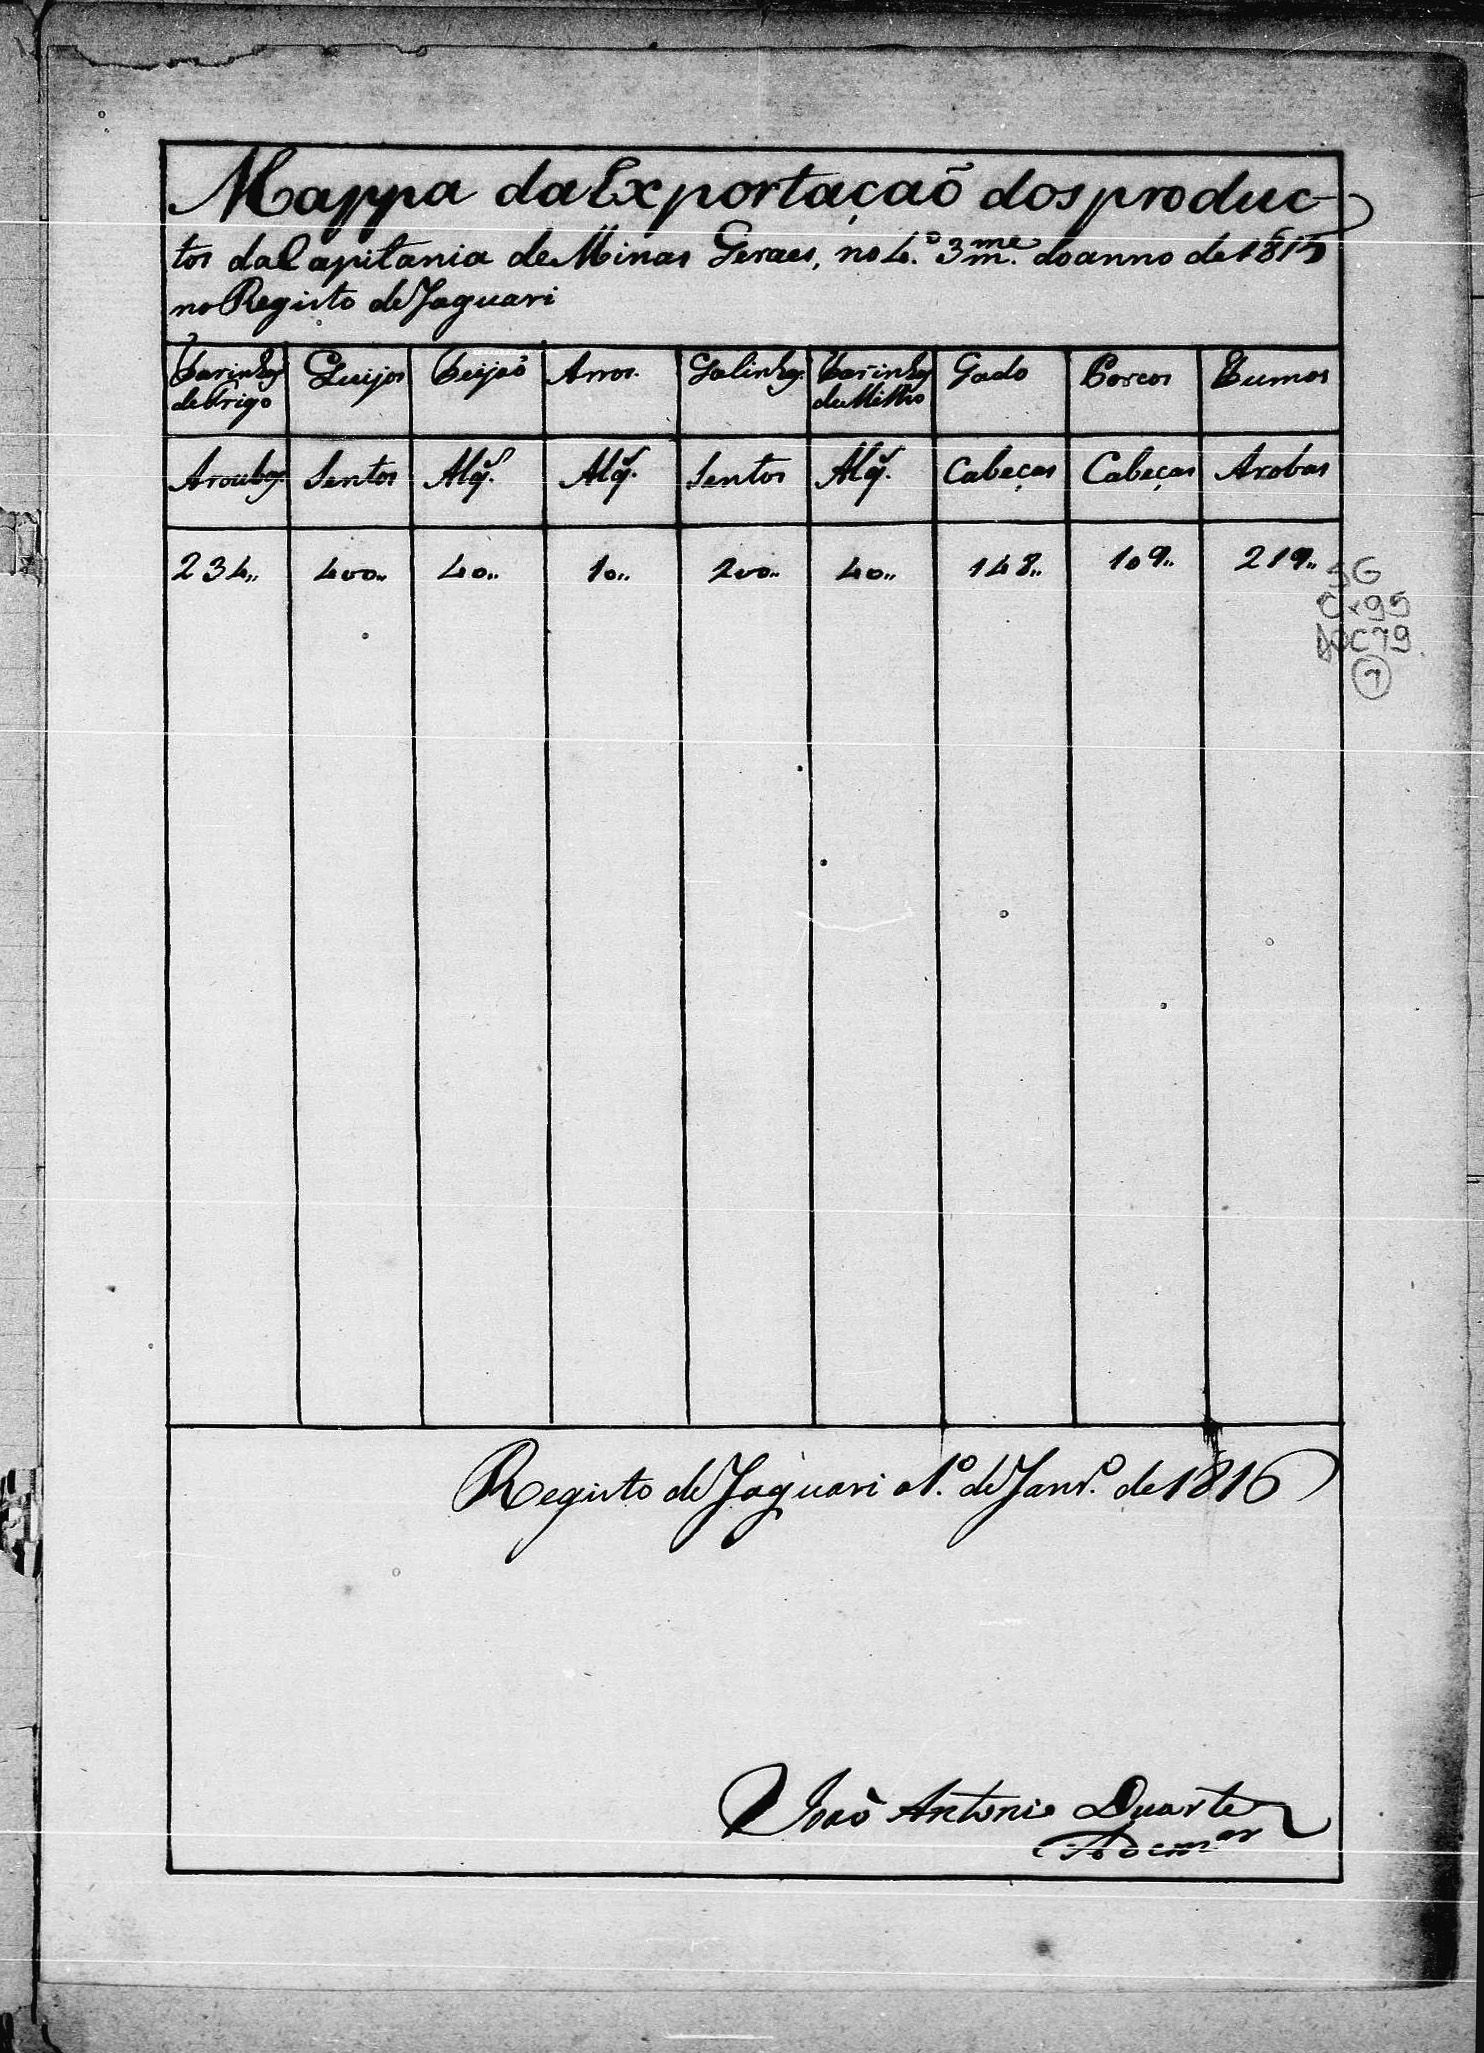 Mappa da Exportaçaõ dos produc-
tos da Capitania de Minas Geraes, no 4.º 3m.me do anno de 1815
no Registo de Jaguari
Farinhas de Trigo Queijos Feijaõ Arros. Galinhas Farinhas de Milho Gado Porcos Fumos
Aroubas Sentos Alq.s Alq.s Sentos Alq.s Cabeças Cabeças Arobas
234,, 400,, 40,, 10,, 200,, 40,, 148,, 109,, 219,,
SG
Cx 95
DOC 79
1
Registo de Jaguari a 1.º de Janr.º de 1816
Joaõ Antonio Duarte